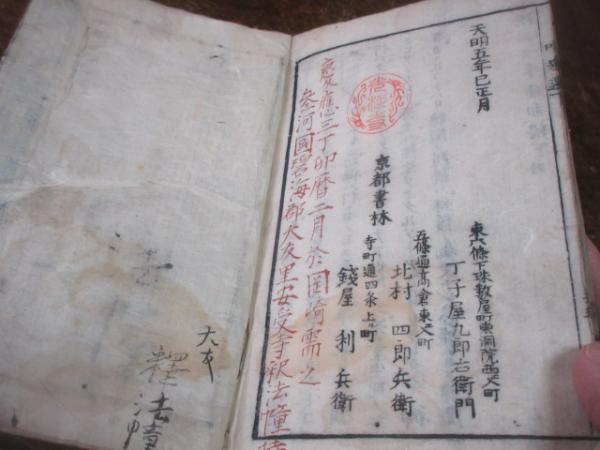 天明五年巳正月
東六條下珠數屋町東洞院西入町
丁子屋九郎右衛門
五條通高倉東入町
北村四郎兵衛
京都書林
寺町通四条上ル町
錢屋利兵衛
慶應三丁卯暦二月於岡崎需之
参河國碧海郡大友里安受寺釈法幢
大友
釋法幢